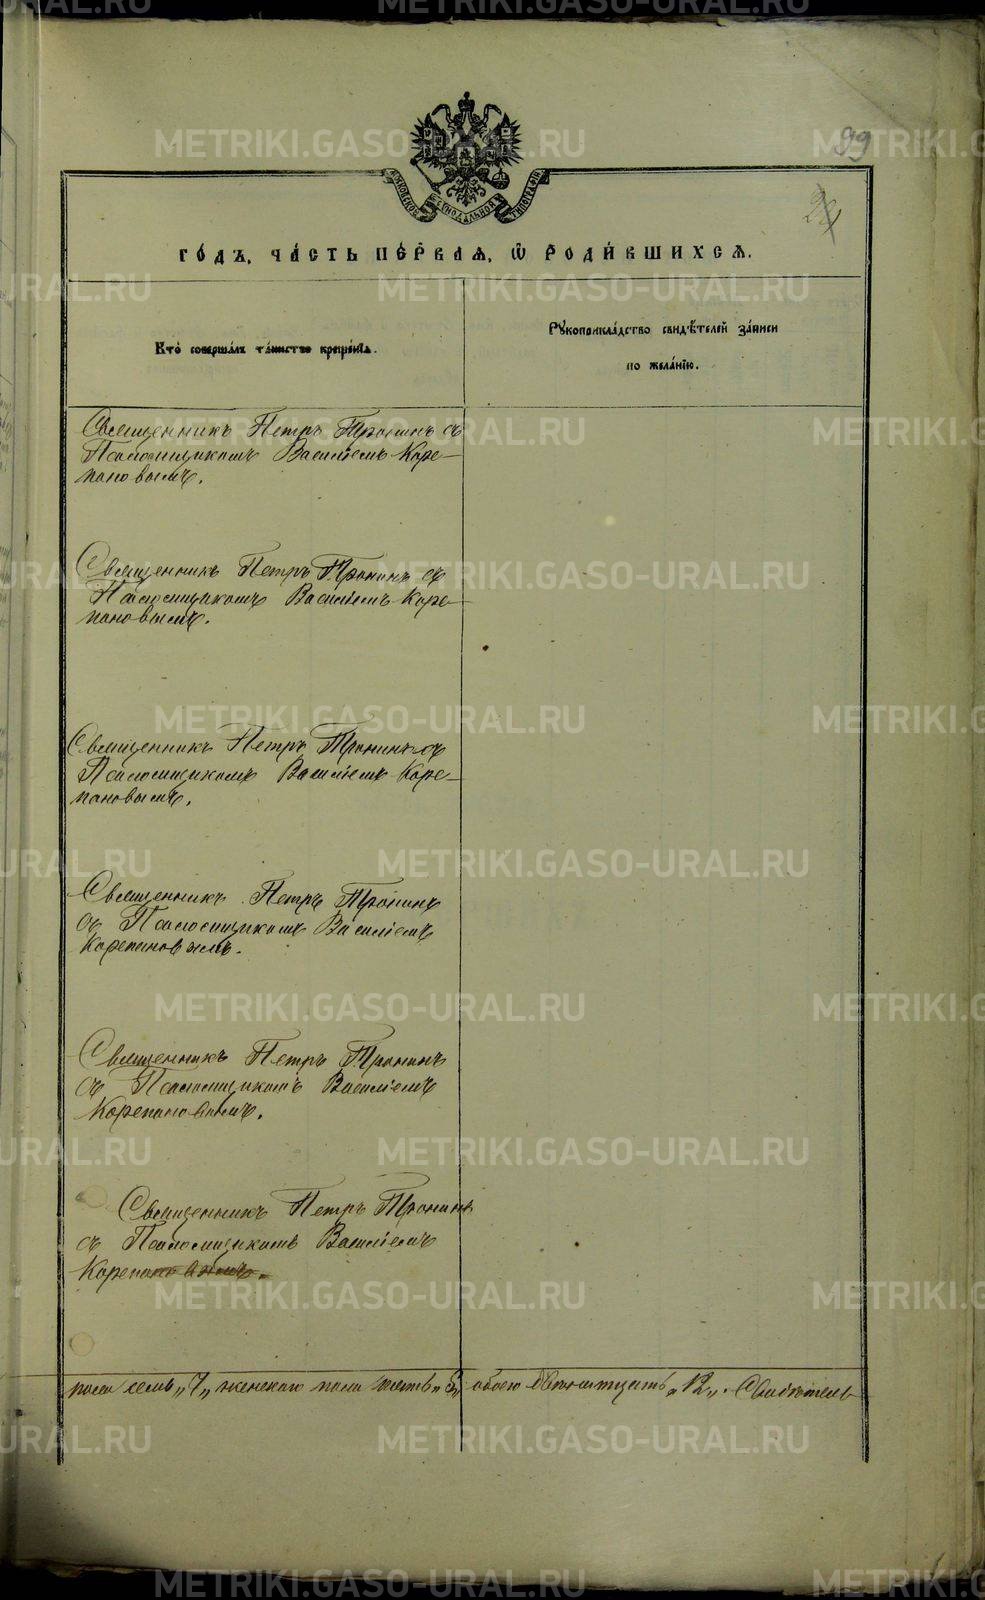 99
24
МОСКОВСКОЕ СѴНОДАЛЬНОЙ ТИПОГРАФІИ
ГО́ДЪ, ЧА́СТЬ ПЕ́РВАѦ, Ѡ҆ РОДИ́ВШИХСѦ.
Кто̀ соверша́лъ та́инство креще́нїѧ.
Рꙋкоприкла́дство свидѣ́телей за́писи
по жела́нїю.
Священникъ Петръ Пронинъ съ
Псаломщикомъ Василіемъ Коре-
пановымъ.
Священникъ Петръ Пронинъ съ
Псаломщикомъ Василіемъ Коре-
пановымъ.
Священникъ Петръ Пронинъ съ
Псаломщикомъ Василіемъ Коре-
пановымъ.
Священникъ Петръ Пронинъ
съ Псаломщикомъ Василіемъ
Корепановымъ.
Священникъ Петръ Пронинъ
съ Псаломщикомъ Василіемъ
Корепановымъ.
Священникъ Петръ Пронинъ
съ Псаломщикомъ Василіемъ
Корепановымъ.
пола семь „7„ женскаго пола пять „5„ обоего двѣнатцать „12„. Свидѣтель
METRIKI.GASO-URAL.RU